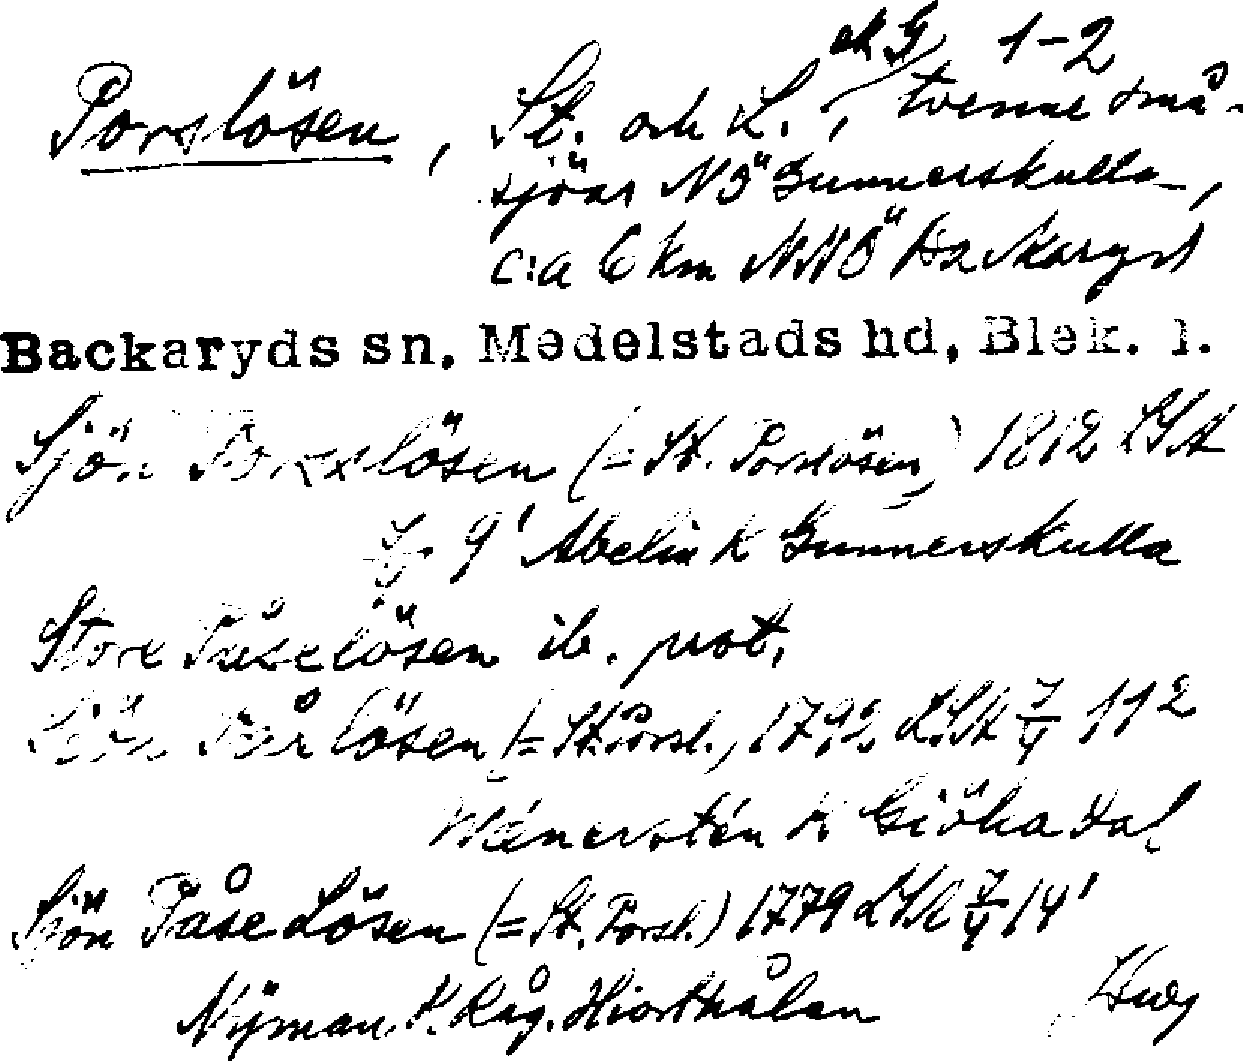 ek G 1-2
Porslösen, St. och L., tvenne små-
sjöar NÖ Gunnerskulla,
c:a 6 km NNÖ Backaryd
Backaryds sn. Medelstads hd, Blek. l.
Sjön Porslösen (= St. Porslösen) 1812 LSA
9¹ Abelin K Gunnerskulla
Store Påselösen ib. prot.
Sjön Pårlösen (= St. Porsl.) 1792 LSA 7/4 11²
Wänerstén K Giöhadal
Sjön Påse Lösen (= St. Porsl.) 1779 LSA 7/4 14¹
Nyman K. Råg. Hiorthålan